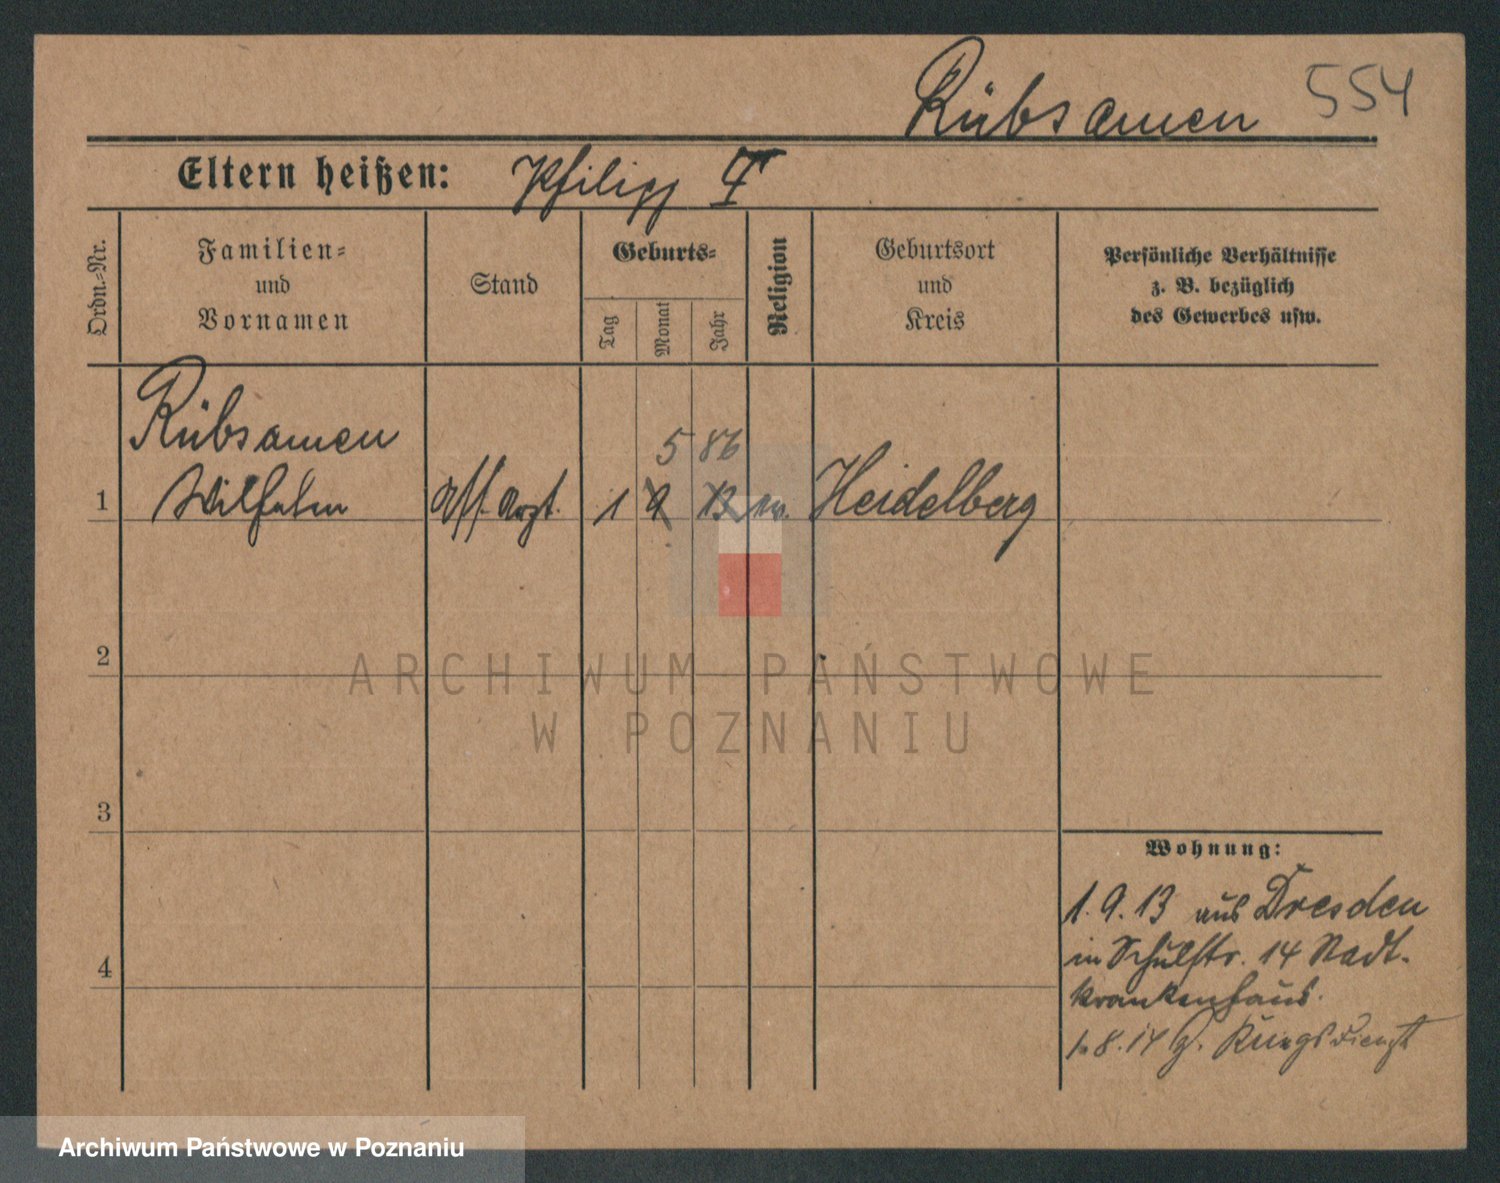 Rübsamen 554
Eltern heißen: Philipp
Ordn.-Nr.
Familien-
und
Vornamen
Stand
Geburts-
Tag
Monat
Jahr
Religion
Geburtsort
und
Kreis
Persönliche Verhältnisse
z. B. bezüglich
des Gewerbes usw.
Rübsamen
5 86
1 Wilhelm Ass. Arzt. 1 9 13 Heidelberg
2
3
4
Wohnung:
1.9.13 aus Dresden
in Schulstr. 14 Stadt-
krankenhaus.
1.8.14 z. Kriegsdienst
ARCHIWUM PAŃSTWOWE
W POZNANIU
Archiwum Państwowe w Poznaniu